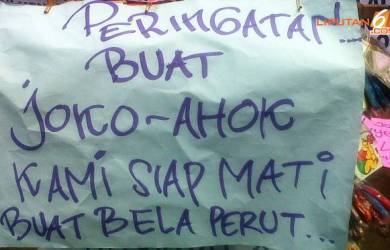 LIPUTAN 6
PERINGATAN!...
BUAT
JOKO-AHOK
KAMI SIAP MATI
BUAT BELA PERUT...